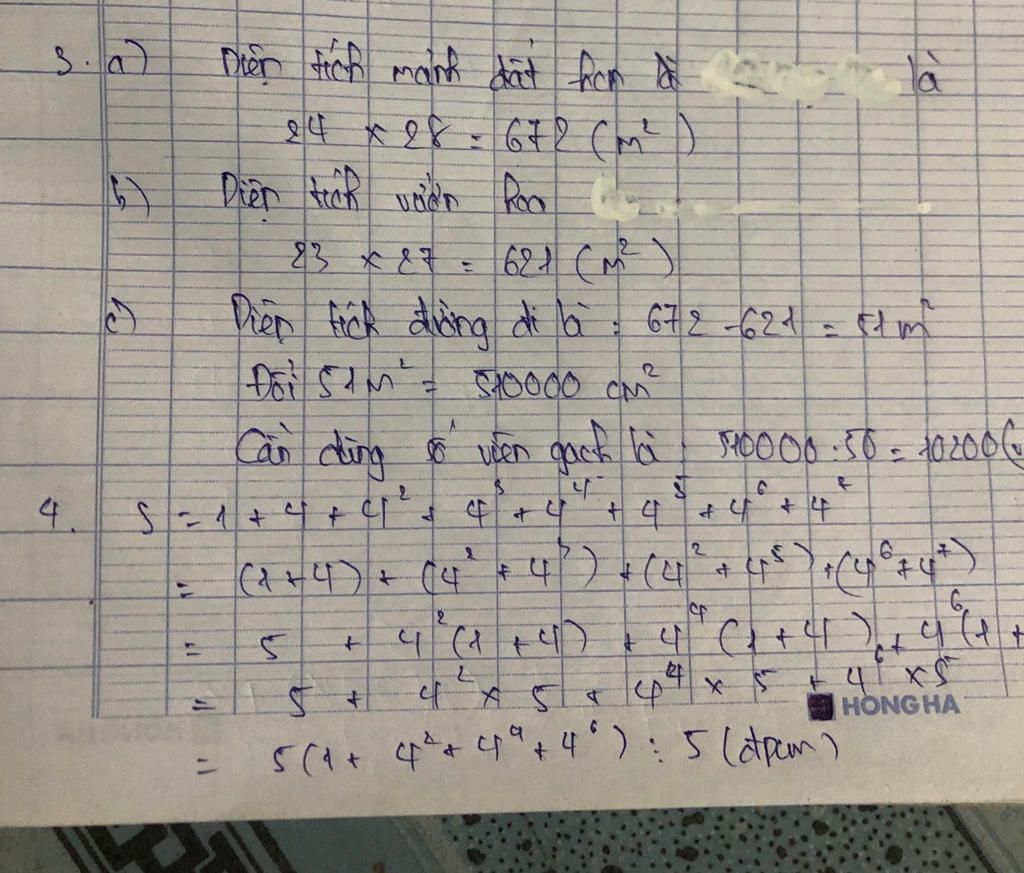 3. a) Diện tích mảnh đất hcn là là
24 × 28 = 672 (m²)
b) Diện tích vườn hoa
23 × 27 = 621 (m²)
c) Diện tích đường đi là : 672 - 621 = 51 m²
Đổi 51 m² = 510000 cm²
Cần dùng số viên gạch là : 510000 : 50 = 10200 (v
4. S = 1 + 4 + 4² + 4³ + 4⁴ + 4⁵ + 4⁶ + 4⁷
= (1 + 4) + (4² + 4³) + (4² + 4⁵) + (4⁶ + 4⁷)
= 5 + 4² (1 + 4) + 4⁴ (1 + 4) + 4⁶ (1 +
= 5 + 4² × 5 + 4⁴ × 5 + 4⁶ × 5
HONG HA
= 5 (1 + 4² + 4⁴ + 4⁶) : 5 (đpcm)